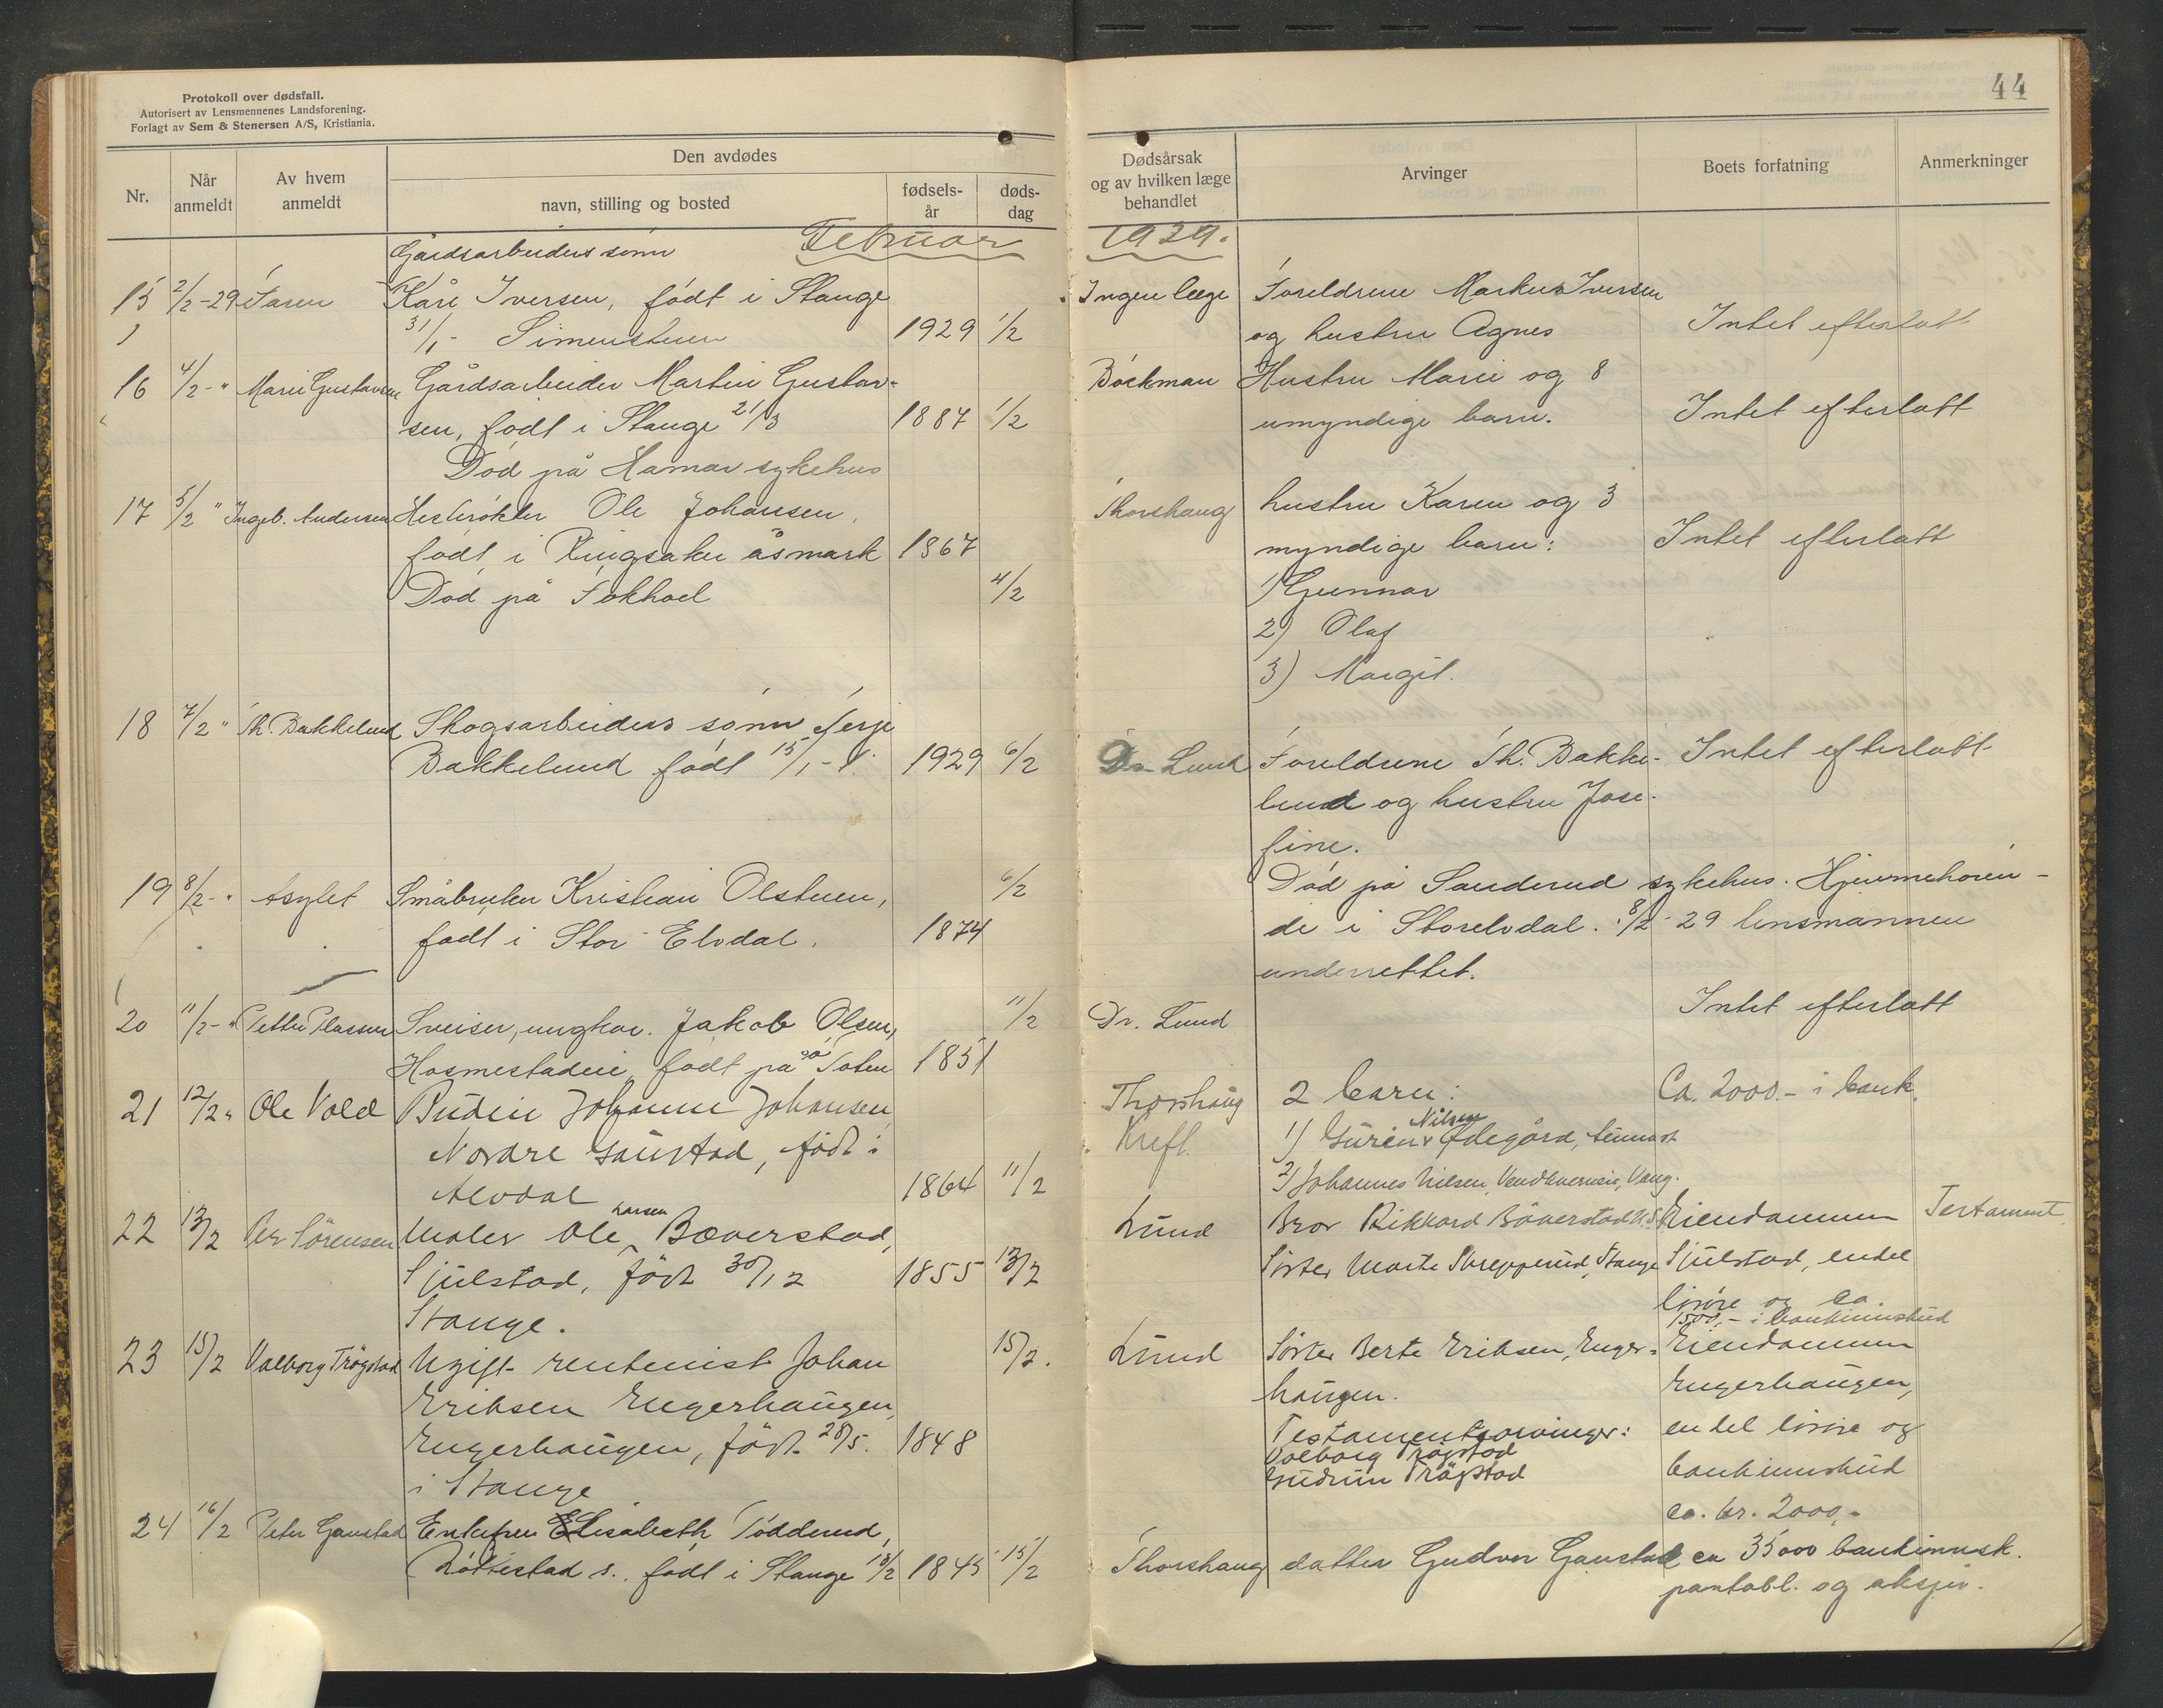 Protokoll over dødsfall.
Autorisert av Lensmennenes Landsforening.
Forlagt av Sem & Stenersen A/S, Kristiania.
44
Nr.
Når anmeldt
Av hvem anmeldt
Den avdødes
navn, stilling og bosted
fødsels-år
døds-dag
Dødsårsak og av hvilken læge behandlet
Arvinger
Boets forfatning
Anmerkninger
Februar 1929.
Gårdsarbeiders sønn
15 2/2-29 Faren Kåre Iversen, født i Stange Ingen læge Foreldrene Markus Iversen
31/1- Simenstuen 1929 1/2 og hustru Agnes Intet efterlatt
16 4/2-" Marie Gustavsen Gårdsarbeider Martin Gustav- Bøckman Hustru Marie og 8
sen, født i Stange 21/3 1887 1/2 umyndige barn. Intet efterlatt
Død på Hamar sykehus
17 5/2 " Ingeb. Andersen Hesterøkter Ole Johansen, Thorshaug hustru Karen og 3
født i Ringsaker åsmark 1867 myndige barn: Intet efterlatt
Død på Fokhoel 4/2 1) Gunnar
2) Olaf
3) Margit.
18 7/2 " Th. Bakkelund Skogsarbeiders sønn Terje
Bakkelund født 15/1- 1929 6/2 Dr. Lund Foreldrene Th. Bakke- Intet efterlatt
lund og hustru Jose-
fine.
19 8/2-" Asylet Småbruker Kristian Olstuen, 6/2 Død på Sanderud sykehus. Hjemmehøren-
født i Stor-Elvdal. 1874 de i Storelvdal. 8/2-29 lensmannen
underrettet.
20 11/2-" Petter Plassen Sveiser, ungkar. Jakob Olsen, 11/2 Dr. Lund Intet efterlatt
Hosmestadeie, født på Toten 1851
21 12/2 " Ole Vold Budeie Johanne Johansen Thorshaug 2 barn: Ca. 2000.- i bank.
Nordre Gaustad, født i Kreft. 1) Guren Nilsen Ødegård,
Alvdal 1864 11/2 2) Johannes Nilsen, Vendkverneie, Vang.
22 13/2 Per Sørensen Maler Ole Larsen Bæverstad, Lund Bror Rikkard Bäverstad U.S. Eiendommen Testament.
Sjulstad, født 30/12 1855 13/2 Søster Marte Skrepperud, Stange Sjulstad, endel
Stange. løsøre og ca.
1500,- i bankinnskud
23 15/2 Valborg Trøgstad Ugift rentenist Johan 15/2. Lund Søster Berte Eriksen, Enger- Eiendommen
Eriksen Engerhaugen, haugen. Engerhaugen,
Engerhaugen, født 28/5. 1848 Testamentsarvinger: en del løsøre og
i Stange Valborg Trøgstad bankinnskud
Gudrun Trøgstad ca. kr. 2000,-
24 16/2 Peter Gaustad Enkefru Elisabeth Tødderud,
Røttestad s., født i Stange 1845 15/2 Thorshaug datter Gudvor Gaustad ca 35000 bankinnsk.
pantobl. og aksjer.